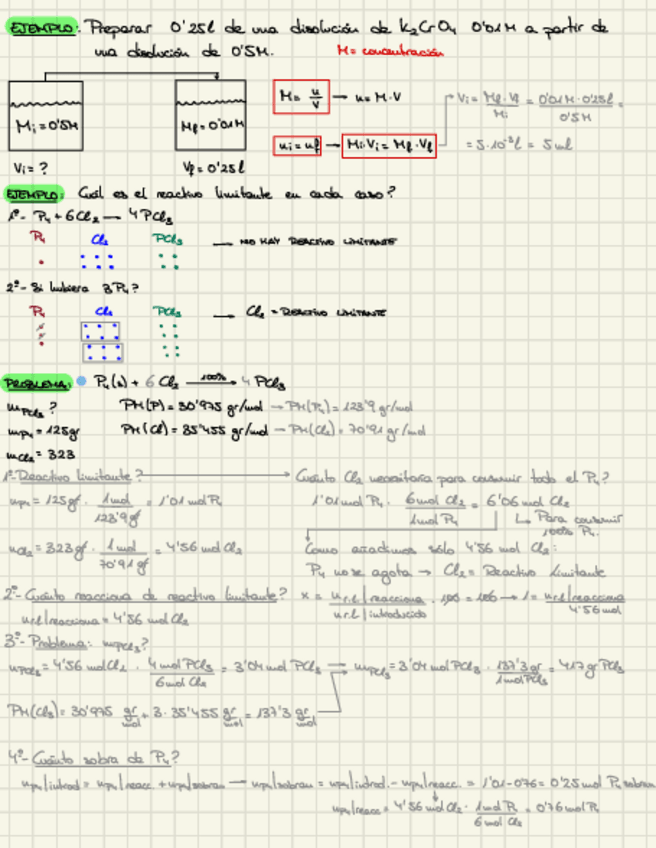 EJEMPLO: Preparar 0'25l de una disolución de K₂CrO₄ 0'01M a partir de
una disolución de 0'5M. M = concentración
Mi = 0'5M
Mf = 0'01M
M = n/V → n = M·V
Vi = Mf·Vf/Mi = 0'01M·0'25l/0'5M =
ni = nf → Mi·Vi = Mf·Vf
= 5·10⁻³l = 5ml
Vi = ?
Vf = 0'25l
EJEMPLO: Cuál es el reactivo limitante en cada caso?
1º- P₄ + 6Cl₂ → 4PCl₃
P₄ Cl₂ PCl₃ → NO HAY REACTIVO LIMITANTE
2º- Si hubiera 3P₄?
P₄ Cl₂ PCl₃ → Cl₂ = REACTIVO LIMITANTE
PROBLEMA: P₄(s) + 6 Cl₂ 100%→ 4 PCl₃
mPCl₃? PM(P) = 30'975 gr/mol → PM(P₄) = 123'9 gr/mol
mP₄ = 125gr PM(Cl) = 35'455 gr/mol → PM(Cl₂) = 70'91 gr/mol
mCl₂ = 323
1º- Reactivo limitante? → Cuánto Cl₂ necesitaría para consumir todo el P₄?
nP₄ = 125gr · 1mol/123'9gr = 1'01 mol P₄
1'01 mol P₄ · 6mol Cl₂/1mol P₄ = 6'06 mol Cl₂
↳ Para consumir
100% P₄.
nCl₂ = 323gr · 1mol/70'91gr = 4'56 mol Cl₂
Como añadimos sólo 4'56 mol Cl₂:
P₄ no se agota → Cl₂ = Reactivo Limitante
2º- Cuánto reacciona de reactivo limitante? x = n r.l/reacciona / n r.l/introducido · 100 = 100 → 1 = n r.l/reacciona / 4'56 mol
n r.l/reacciona = 4'56 mol Cl₂
3º- Problema: mPCl₃?
nPCl₃ = 4'56 mol Cl₂ · 4 mol PCl₃/6 mol Cl₂ = 3'04 mol PCl₃ → mPCl₃ = 3'04 mol PCl₃ · 137'3 gr/1 mol PCl₃ = 417 gr PCl₃
PM(Cl₃) = 30'975 gr/mol + 3·35'455 gr/mol = 137'3 gr/mol
4º- Cuánto sobra de P₄?
nP₄/introd = nP₄/reacc + nP₄/sobran → nP₄/sobran = nP₄/introd. - nP₄/reacc. = 1'01-0'76 = 0'25 mol P₄ sobran
nP₄/reacc = 4'56 mol Cl₂ · 1mol P₄/6 mol Cl₂ = 0'76 mol P₄